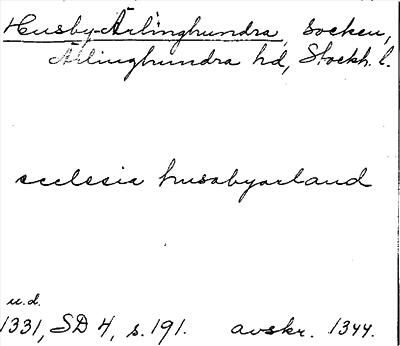 Husby-Ärlinghundra, socken,
Ärlinghundra hd, Stockh. l.
ecclesie husabyarland
u.d.
1331, SD 4, s. 191. avskr. 1344.